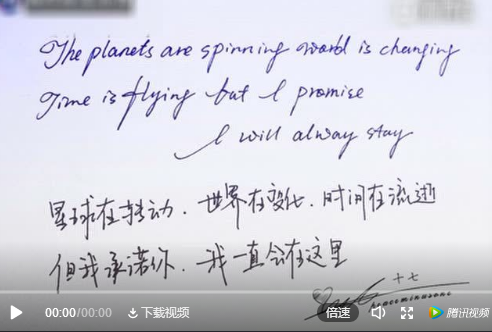 The planets are spinning world is changing
Time is flying but I promise
I will alway stay
星球在转动.世界在变化.时间在流逝
但我承诺你.我一直会在这里
十七
00:00/00:00 下载视频 倍速 腾讯视频